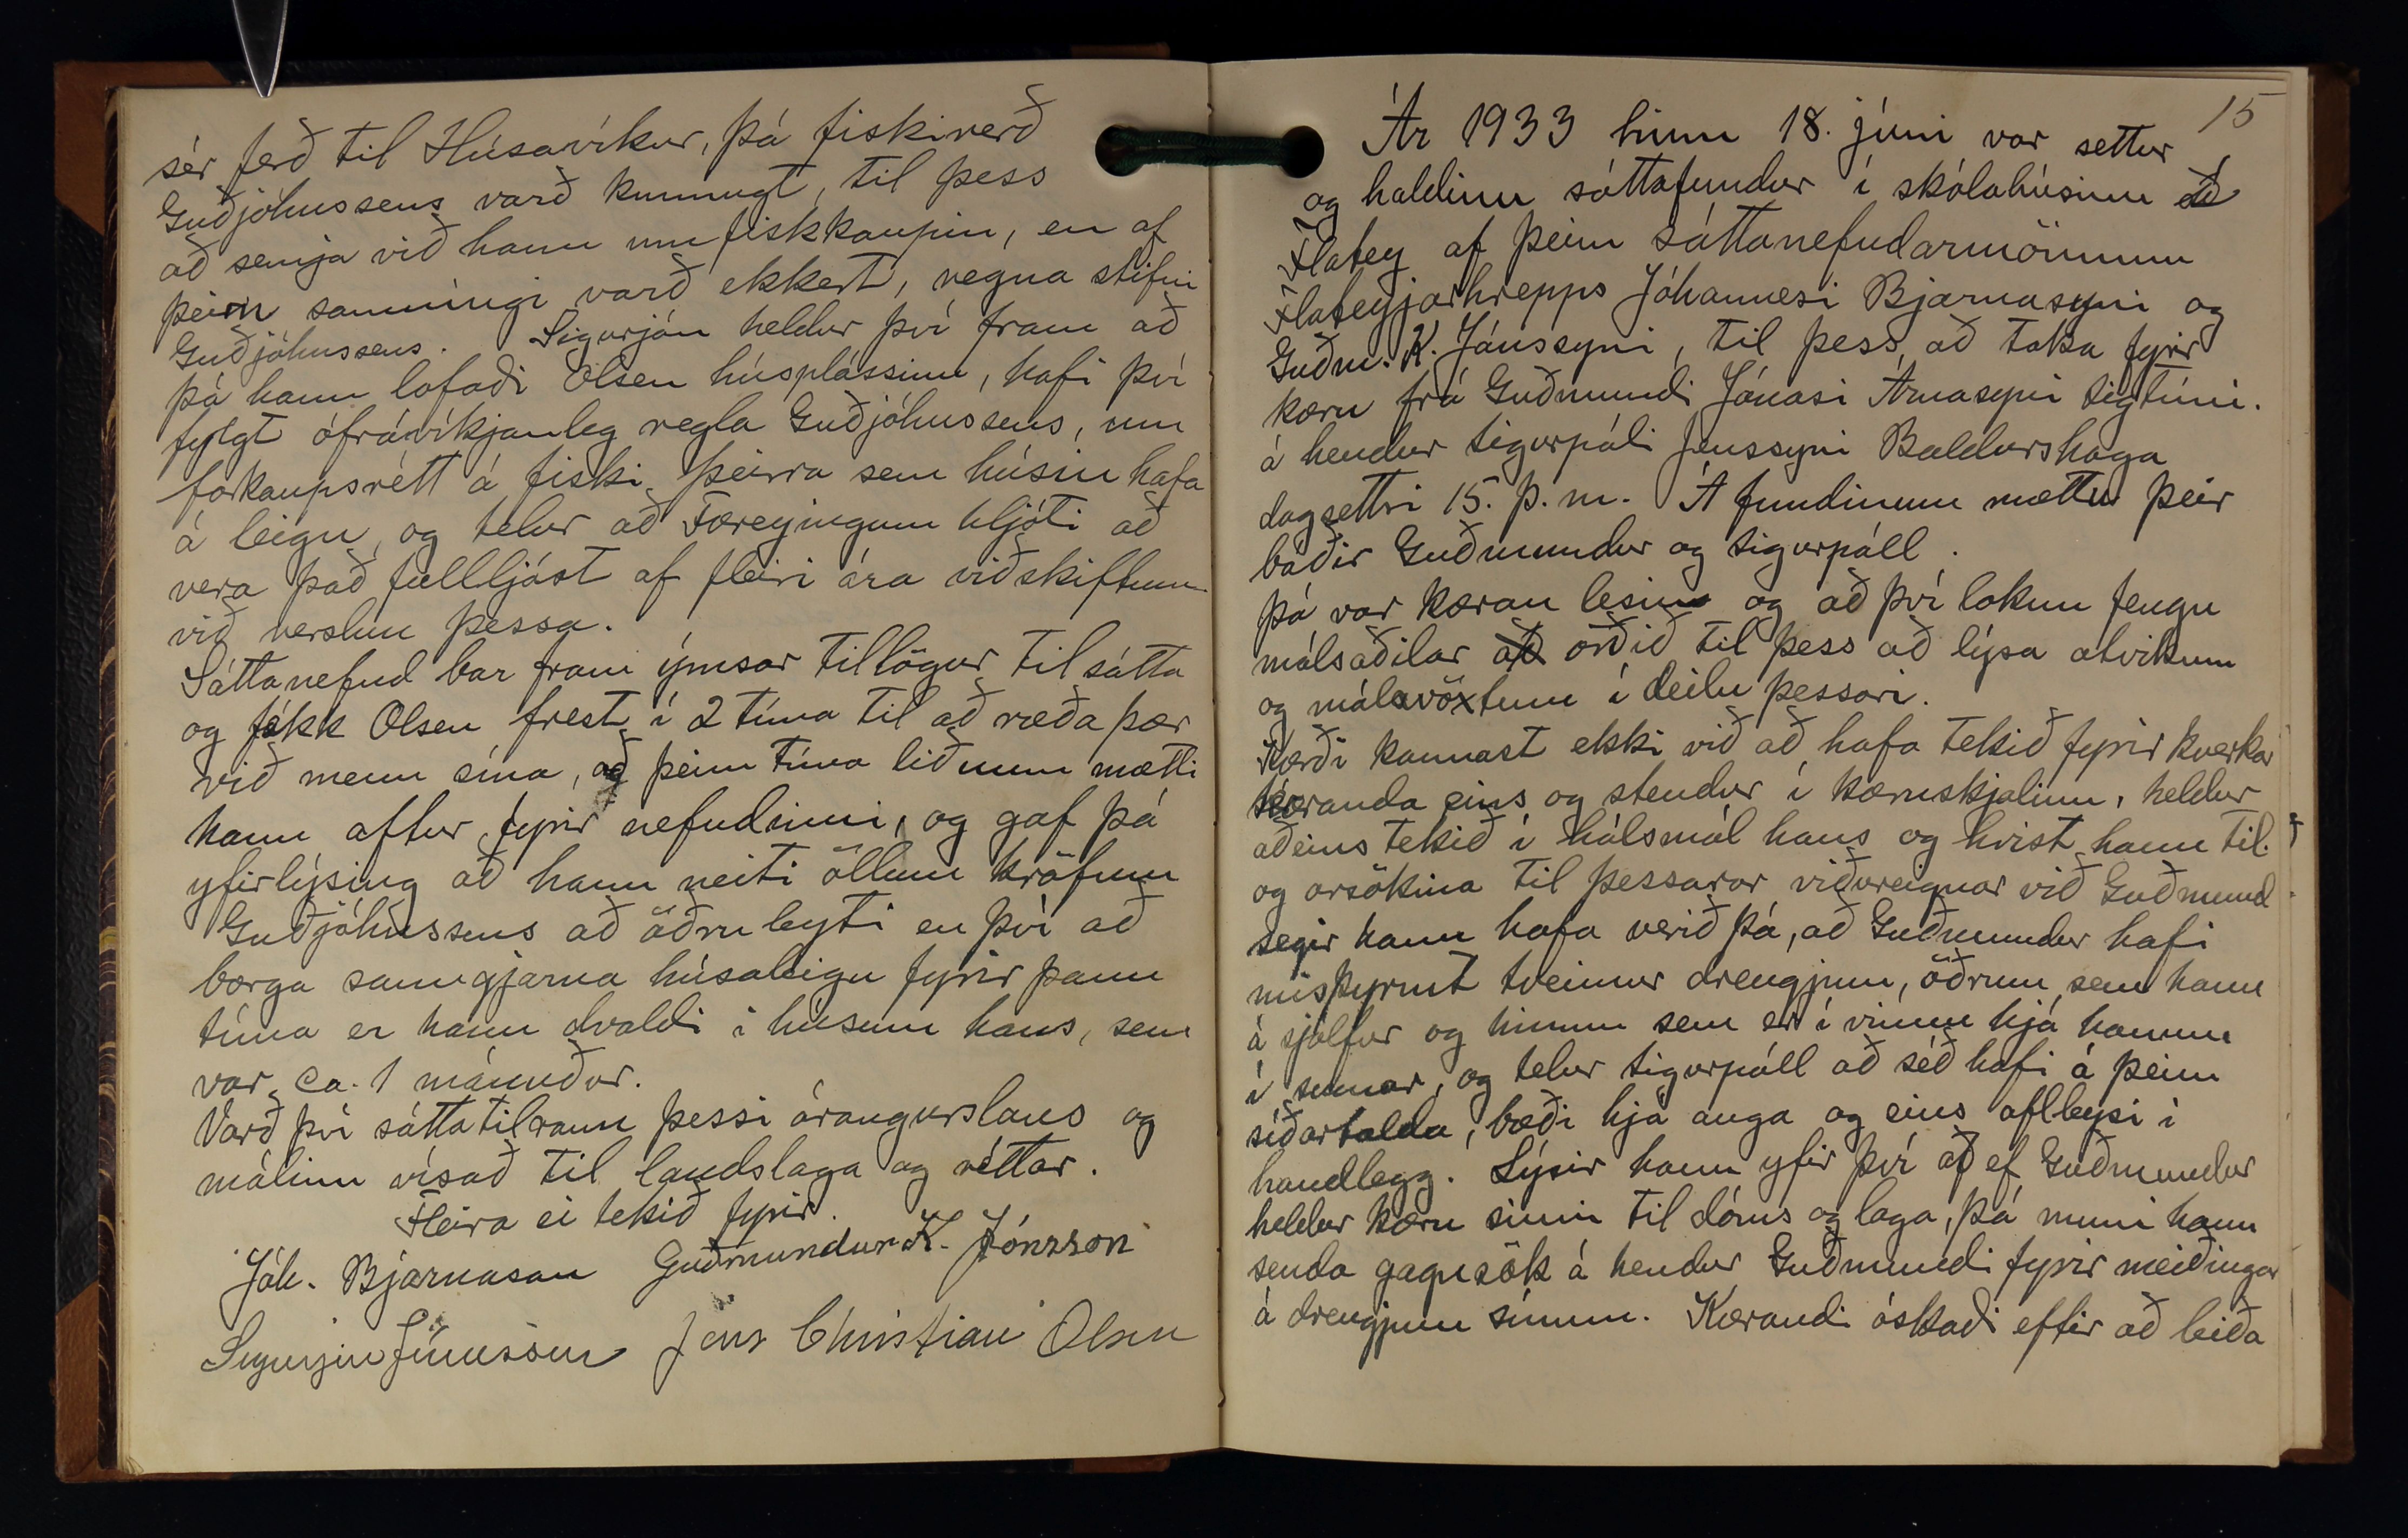 sér ferð til Húsavíkur, þá fiskiverð
Guðjóhnssens varð kunnugt, til þess
að semja við hann um fiskkaupin, en af
þeim samningi varð ekkert, vegna stífni
Guðjóhnssens. Sigurjón heldur því fram að
þá hann lofaði Olsen húsplássinu, hafi því
fylgt ófrávíkjanleg regla Guðjóhnssens, um
forkaupsrétt á fiski þeirra sem húsin hafa
á leigu, og telur að Færeyingum hljóti að
vera það fullljóst af fleiri ára viðskiftum
við verslun þessa.
Sáttanefnd bar fram ýmsar tillögur til sátta
og fékk Olsen frest í 2 tíma til að ræða þær
við menn sína, að þeim tíma liðnum mætti
hann aftur fyrir nefndinni, og gaf þá
yfirlýsing að hann neiti öllum kröfum
Guðjóhnssens að öðru leyti en því að
borga sanngjarna húsaleigu fyrir þann
tíma er hann dvaldi í húsum hans, sem
var ca. 1 mánuður.
Varð því sáttatilraun þessi árangurslaus og
málinu vísað til landslaga og réttar.
Fleira ei tekið fyrir.
Jóh. Bjarnason Guðmundur K. Jónsson
Sigurjón Jónsson Jens Christian Olsen
15
Ár 1933 hinn 18. júni var settur
og haldinn sáttafundur í skólahúsinu á
Flatey af þeim sáttanefndarmönnum
Flateyjarhrepps Jóhannesi Bjarnasyni og
Guðm. K. Jónssyni, til þess að taka fyrir
kæru frá Guðmundi Jónasi Árnasyni Sigtúni.
á hendur Sigurpáli Jenssyni Baldurshaga
dagsettri 15. þ.m. Á fundinum mættu þeir
báðir Guðmundur og Sigurpáll.
Þá var kæran lesin og að því loknu fengu
málsaðilar að orðið til þess að lýsa atvikum
og málavöxtum í deilu þessari.
Kærði kannast ekki við að hafa tekið fyrir kverkar
kæranda eins og stendur í kæruskjalinu, heldur
aðeins tekið í hálsmál hans og hrist hann til.
og orsökina til þessarar viðureignar við Guðmund
segir hann hafa verið þá, að Guðmundur hafi
misþyrmt tveimur drengjum, öðrum sem hann
á sjálfur og hinum sem er í vinnu hjá honum
í sumar, og telur Sigurpáll að séð hafi á þeim
síðartalda, bæði hjá auga og eins aflleysi í
handlegg. Lýsir hann yfir því að ef Guðmundur
heldur kæru sinni til dóms og laga, þá muni hann
senda gagnsök á hendur Guðmundi fyrir meiðingar
á drengjum sínum. Kærandi óskaði eftir að leiða